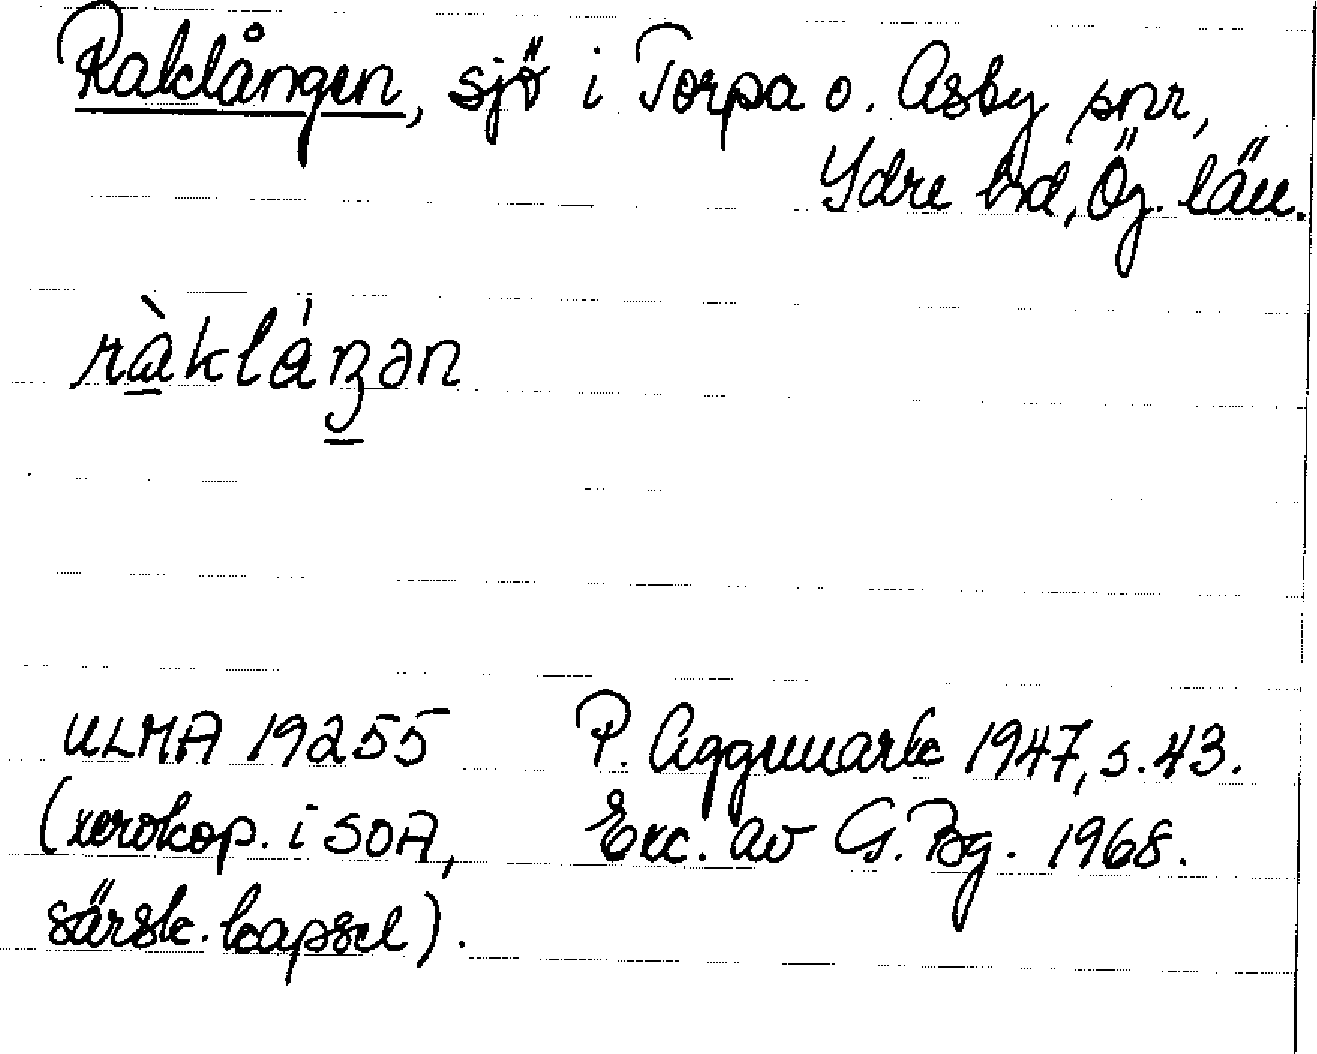 Raklången, sjö i Torpa o. Asby snr,
Ydre hd, Ög. län.
ràkláŋən
ULMA 19255
(xerokop. i SOA,
särsk. kapsel).
P. Aggemark 1947, s. 43.
Exc. av G. Bg. 1968.